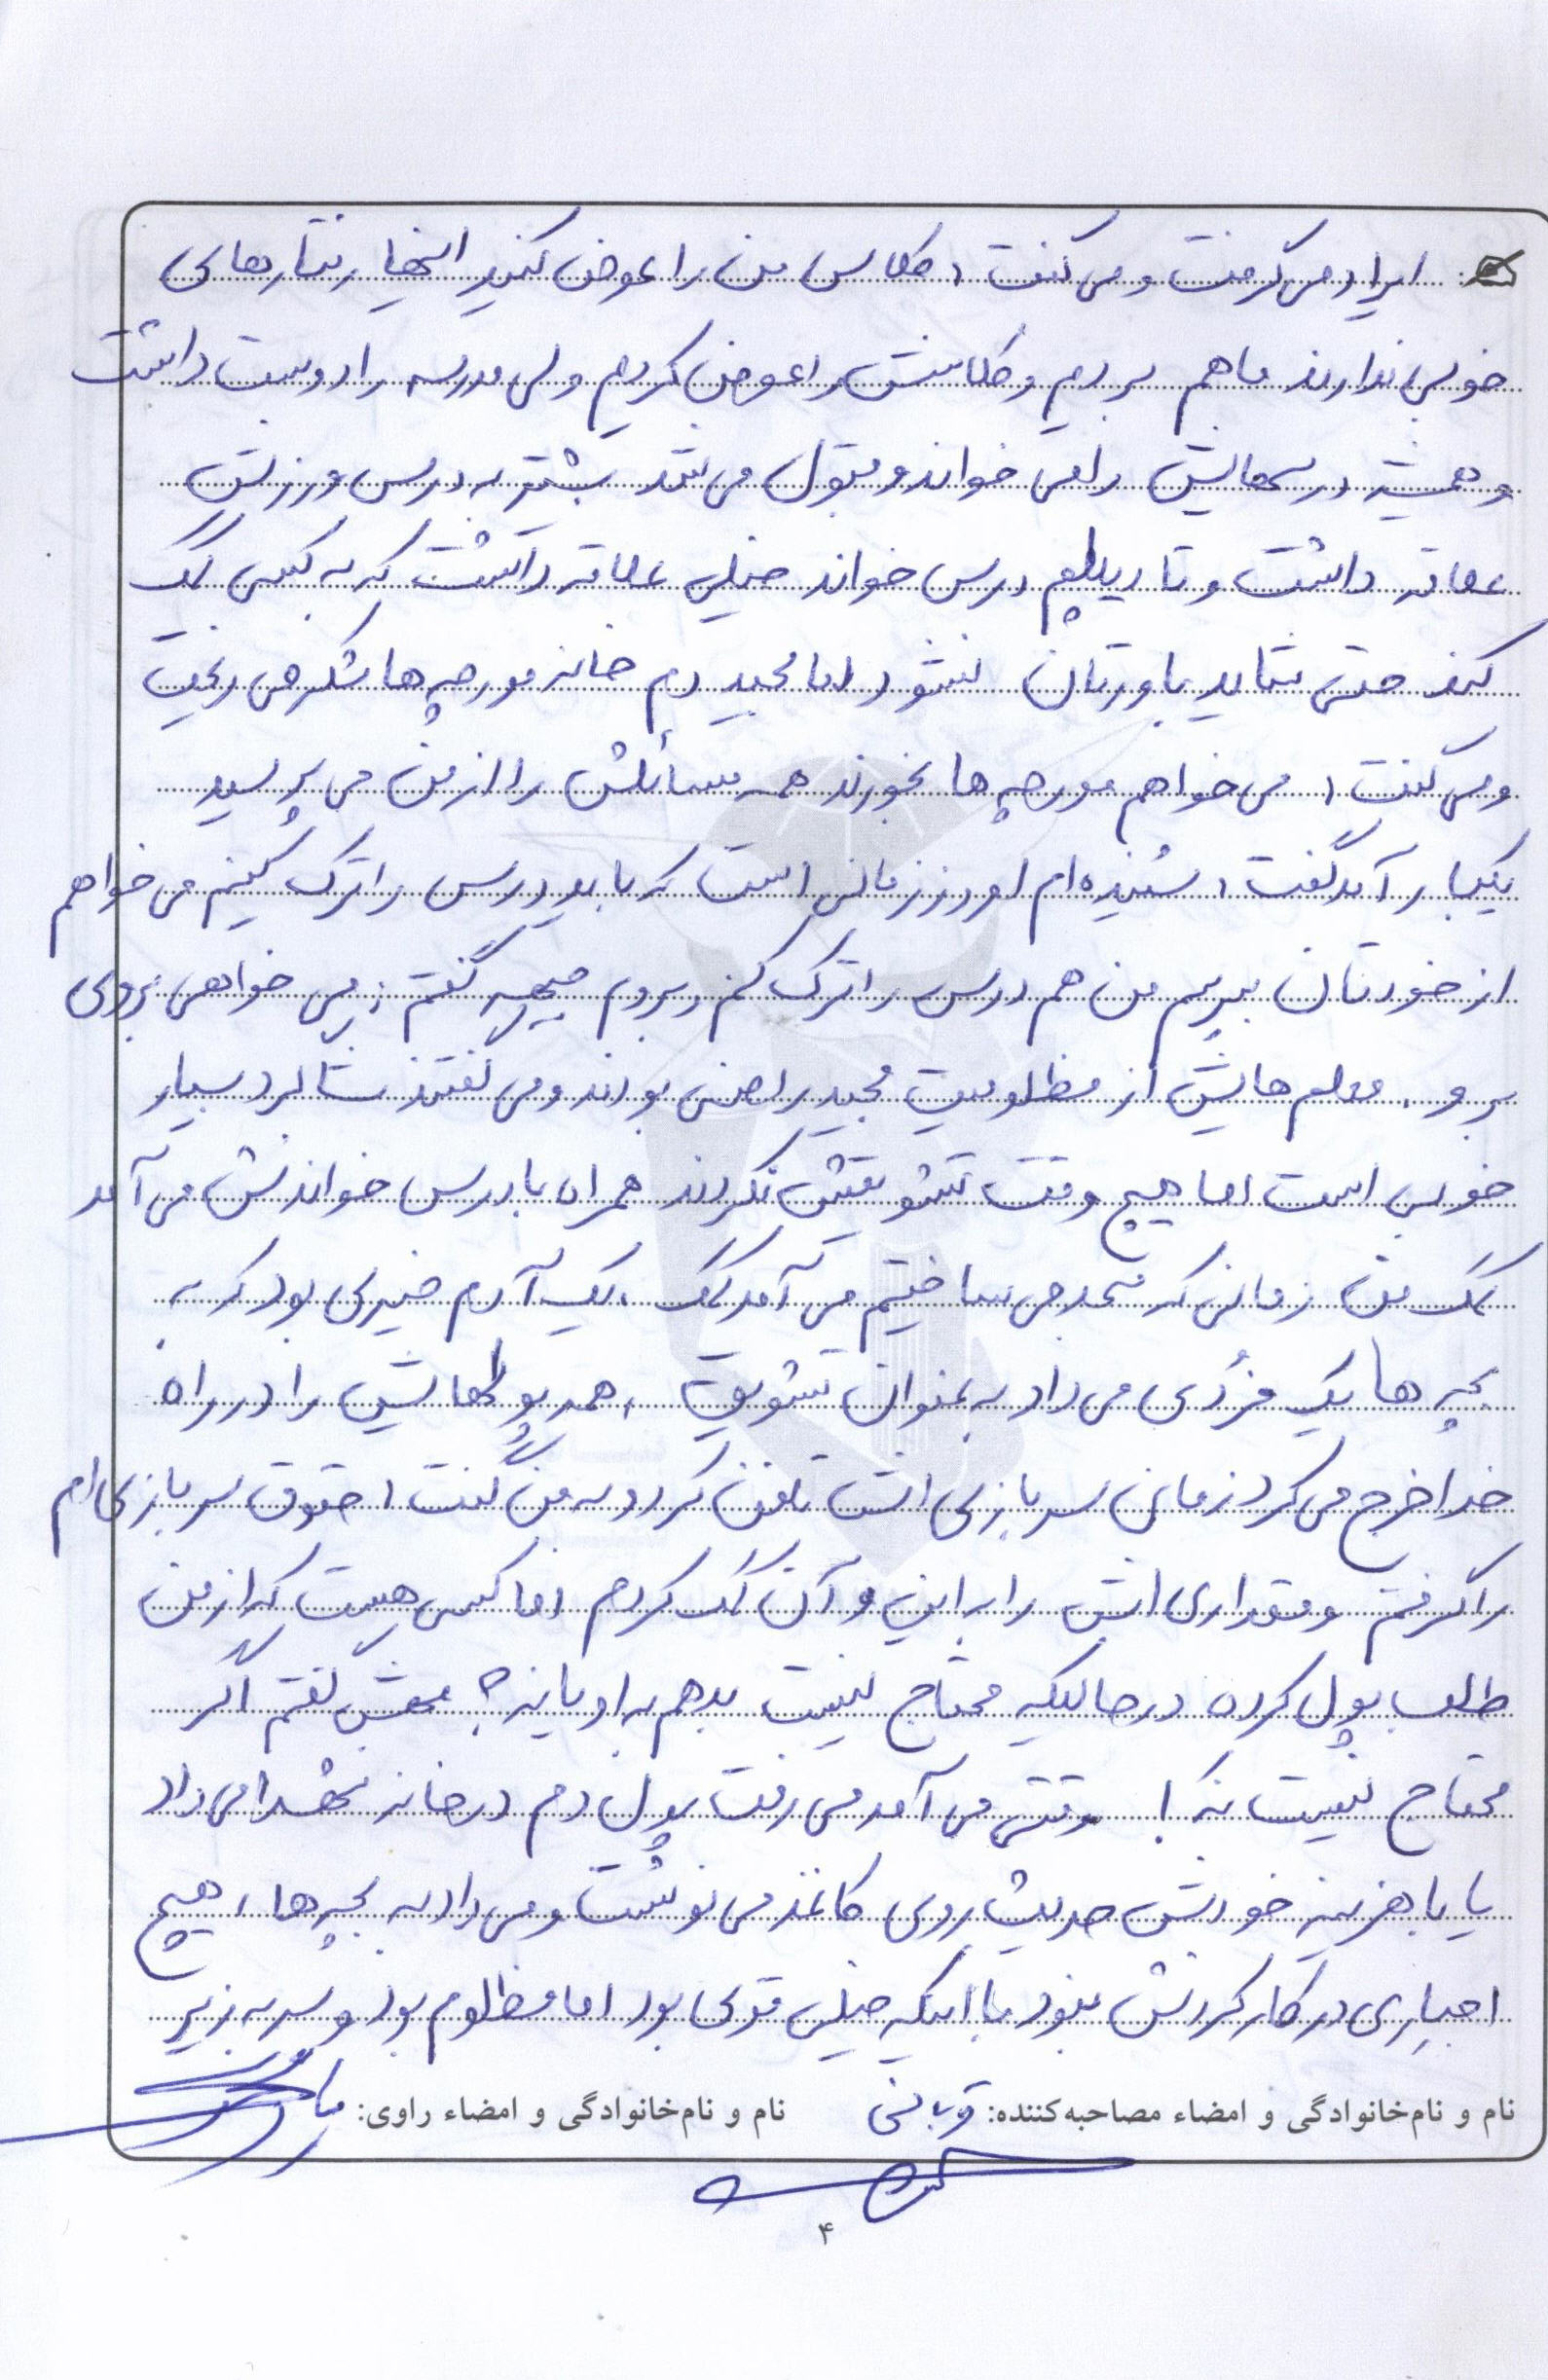 ایراد می گرفت و می گفت؛ کلاس من را عوض کنید اینها رفتارهای
خوبی ندارند ما هم بردیم و کلاسش را عوض کردیم ولی مدرسه را دوست داشت
و همیشه درسهایش را می خواند و قبول می شد بیشتر به درس ورزش
علاقه داشت و تا دیپلم درس خواند خیلی علاقه داشت که به کسی کمک
کند حتی شاید باورتان نشود اما مجید دم خانه مورچه ها شکر می ریخت
و می گفت؛ می خواهم مورچه ها بخورند همه مسائلش را از من می پرسید
یکبار آمد گفت؛ شنیده ام امروز زمانی است که باید درس را ترک کنیم می خواهم
از خودتان بپرسم من هم درس را ترک کنم و بروم جبهه گفتم؛ می خواهی بروی
برو. معلم هایش از مظلومیت مجید راضی بودند و می گفتند شاگرد بسیار
خوبی است اما هیچ وقت تشویقش نکردند همراه با درس خواندنش می آمد
کمک من زمانی که مسجد می ساختیم می آمد کمک، یک آدم خیری بود که به
بچه ها یک مزدی می داد به عنوان تشویق، همه پولهایش را در راه
خدا خرج می کرد زمانی سربازی اش تلفن کرد و به من گفت؛ حقوق سربازی ام
را گرفتم و مقداری اش را به این و آن کمک کردم اما کسی هست که از من
طلب پول کرده در حالیکه محتاج نیست بدهم به او یا نه؟ بهش گفتم اگر
محتاج نیست نه! وقتی می آمد می رفت پول دم در خانه شهدا می داد
یا با هزینه خودش حدیث روی کاغذ می نوشت و می داد به بچه ها، هیچ
اجباری در کار کردنش نبود با اینکه خیلی قوی بود اما مظلوم بود و سر به زیر
نام و نام‌خانوادگی و امضاء مصاحبه‌کننده: قربانی نام و نام‌خانوادگی و امضاء راوی:
۴